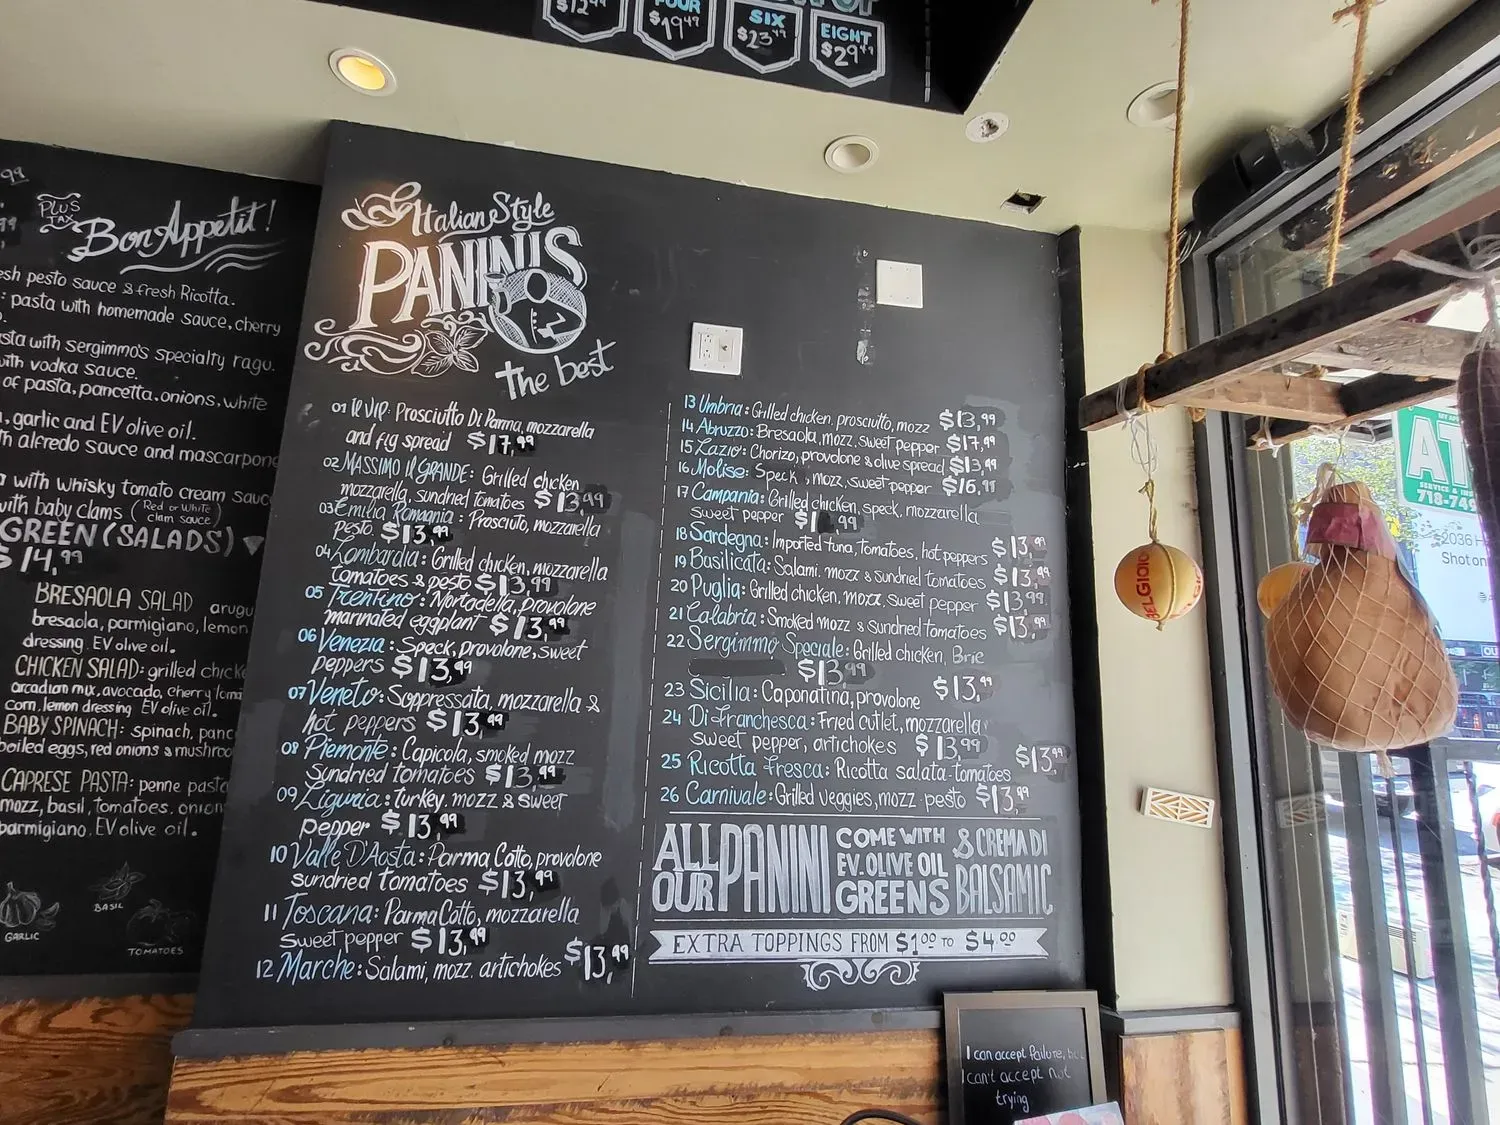 $12.49
FOUR
$19.49
SIX
$23.49
EIGHT
$29.49
PLUS
TAX
Bon Appetit!
pesto sauce & fresh Ricotta.
pasta with homemade sauce, cherry
with sergimmo's specialty ragu.
with vodka sauce.
of pasta, pancetta, onions, white
garlic and EV olive oil.
alfredo sauce and mascarpone
with whisky tomato cream sauce
with baby clams (Red or White
clam sauce)
GREEN (SALADS)
$14,99
BRESAOLA SALAD
bresaola, parmigiano, lemon
dressing. EV olive oil.
CHICKEN SALAD: grilled
arcadian mix, avocado, cherry
corn, lemon dressing EV olive oil.
BABY SPINACH: spinach,
boiled eggs, red onions &
CAPRESE PASTA: penne pasta
mozz, basil, tomatoes. onion
parmigiano. EV olive oil.
GARLIC
BASIL
TOMATOES
Italian Style
PANINIS
The best
01 IL VIP: Prosciutto Di Parma, mozzarella
and fig spread $17,99
02 MASSIMO IL GRANDE: Grilled chicken
mozzarella, sundried tomatoes $13,99
03 Emilia Romagnia: Prosciuto, mozzarella
pesto. $13,99
04 Lombardia: Grilled chicken, mozzarella
tomatoes & pesto $13,99
05 Trentino: Mortadella, provolone
marinated eggplant $13,99
06 Venezia: Speck, provolone, sweet
peppers $13,99
07 Veneto: Soppressata, mozzarella &
hot peppers $13,99
08 Piemonte: Capicola, smoked mozz
Sundried tomatoes $13,99
09 Liguria: turkey, mozz & sweet
pepper $13,99
10 Valle D'Aosta: Parma Cotto, provolone
sundried tomatoes $13,99
11 Toscana: Parma Cotto, mozzarella
sweet pepper $13,99
12 Marche: Salami, mozz. artichokes $13,99
13 Umbria: Grilled chicken, prosciutto, mozz $13,99
14 Abruzzo: Bresaola, mozz, sweet pepper $17,99
15 Lazio: Chorizo, provolone & olive spread $13,99
16 Molise: Speck, mozz, sweet pepper $16,99
17 Campania: Grilled chicken, speck, mozzarella
sweet pepper $1 ,99
18 Sardegna: Imported tuna, tomatoes, hot peppers $13,99
19 Basilicata: Salami, mozz & sundried tomatoes $13,99
20 Puglia: Grilled chicken, mozz, sweet pepper $13,99
21 Calabria: Smoked mozz & Sundried tomatoes $13,99
22 Sergimmo Speciale: Grilled chicken, Brie
$13,99
23 Sicilia: Caponatina, provolone $13,99
24 Di Franchesca: Fried cutlet, mozzarella
sweet pepper, artichokes $13,99
25 Ricotta Fresca: Ricotta salata-tomatoes $13,99
26 Carnivale: Grilled veggies, mozz pesto $13,99
ALL OUR PANINI COME WITH EV. OLIVE OIL GREENS & CREMA DI BALSAMIC
EXTRA TOPPINGS FROM $1.00 TO $4.00
I can accept failure, but
I can't accept not
trying
BELGIOIO
AT
718-74
2036
Shot on